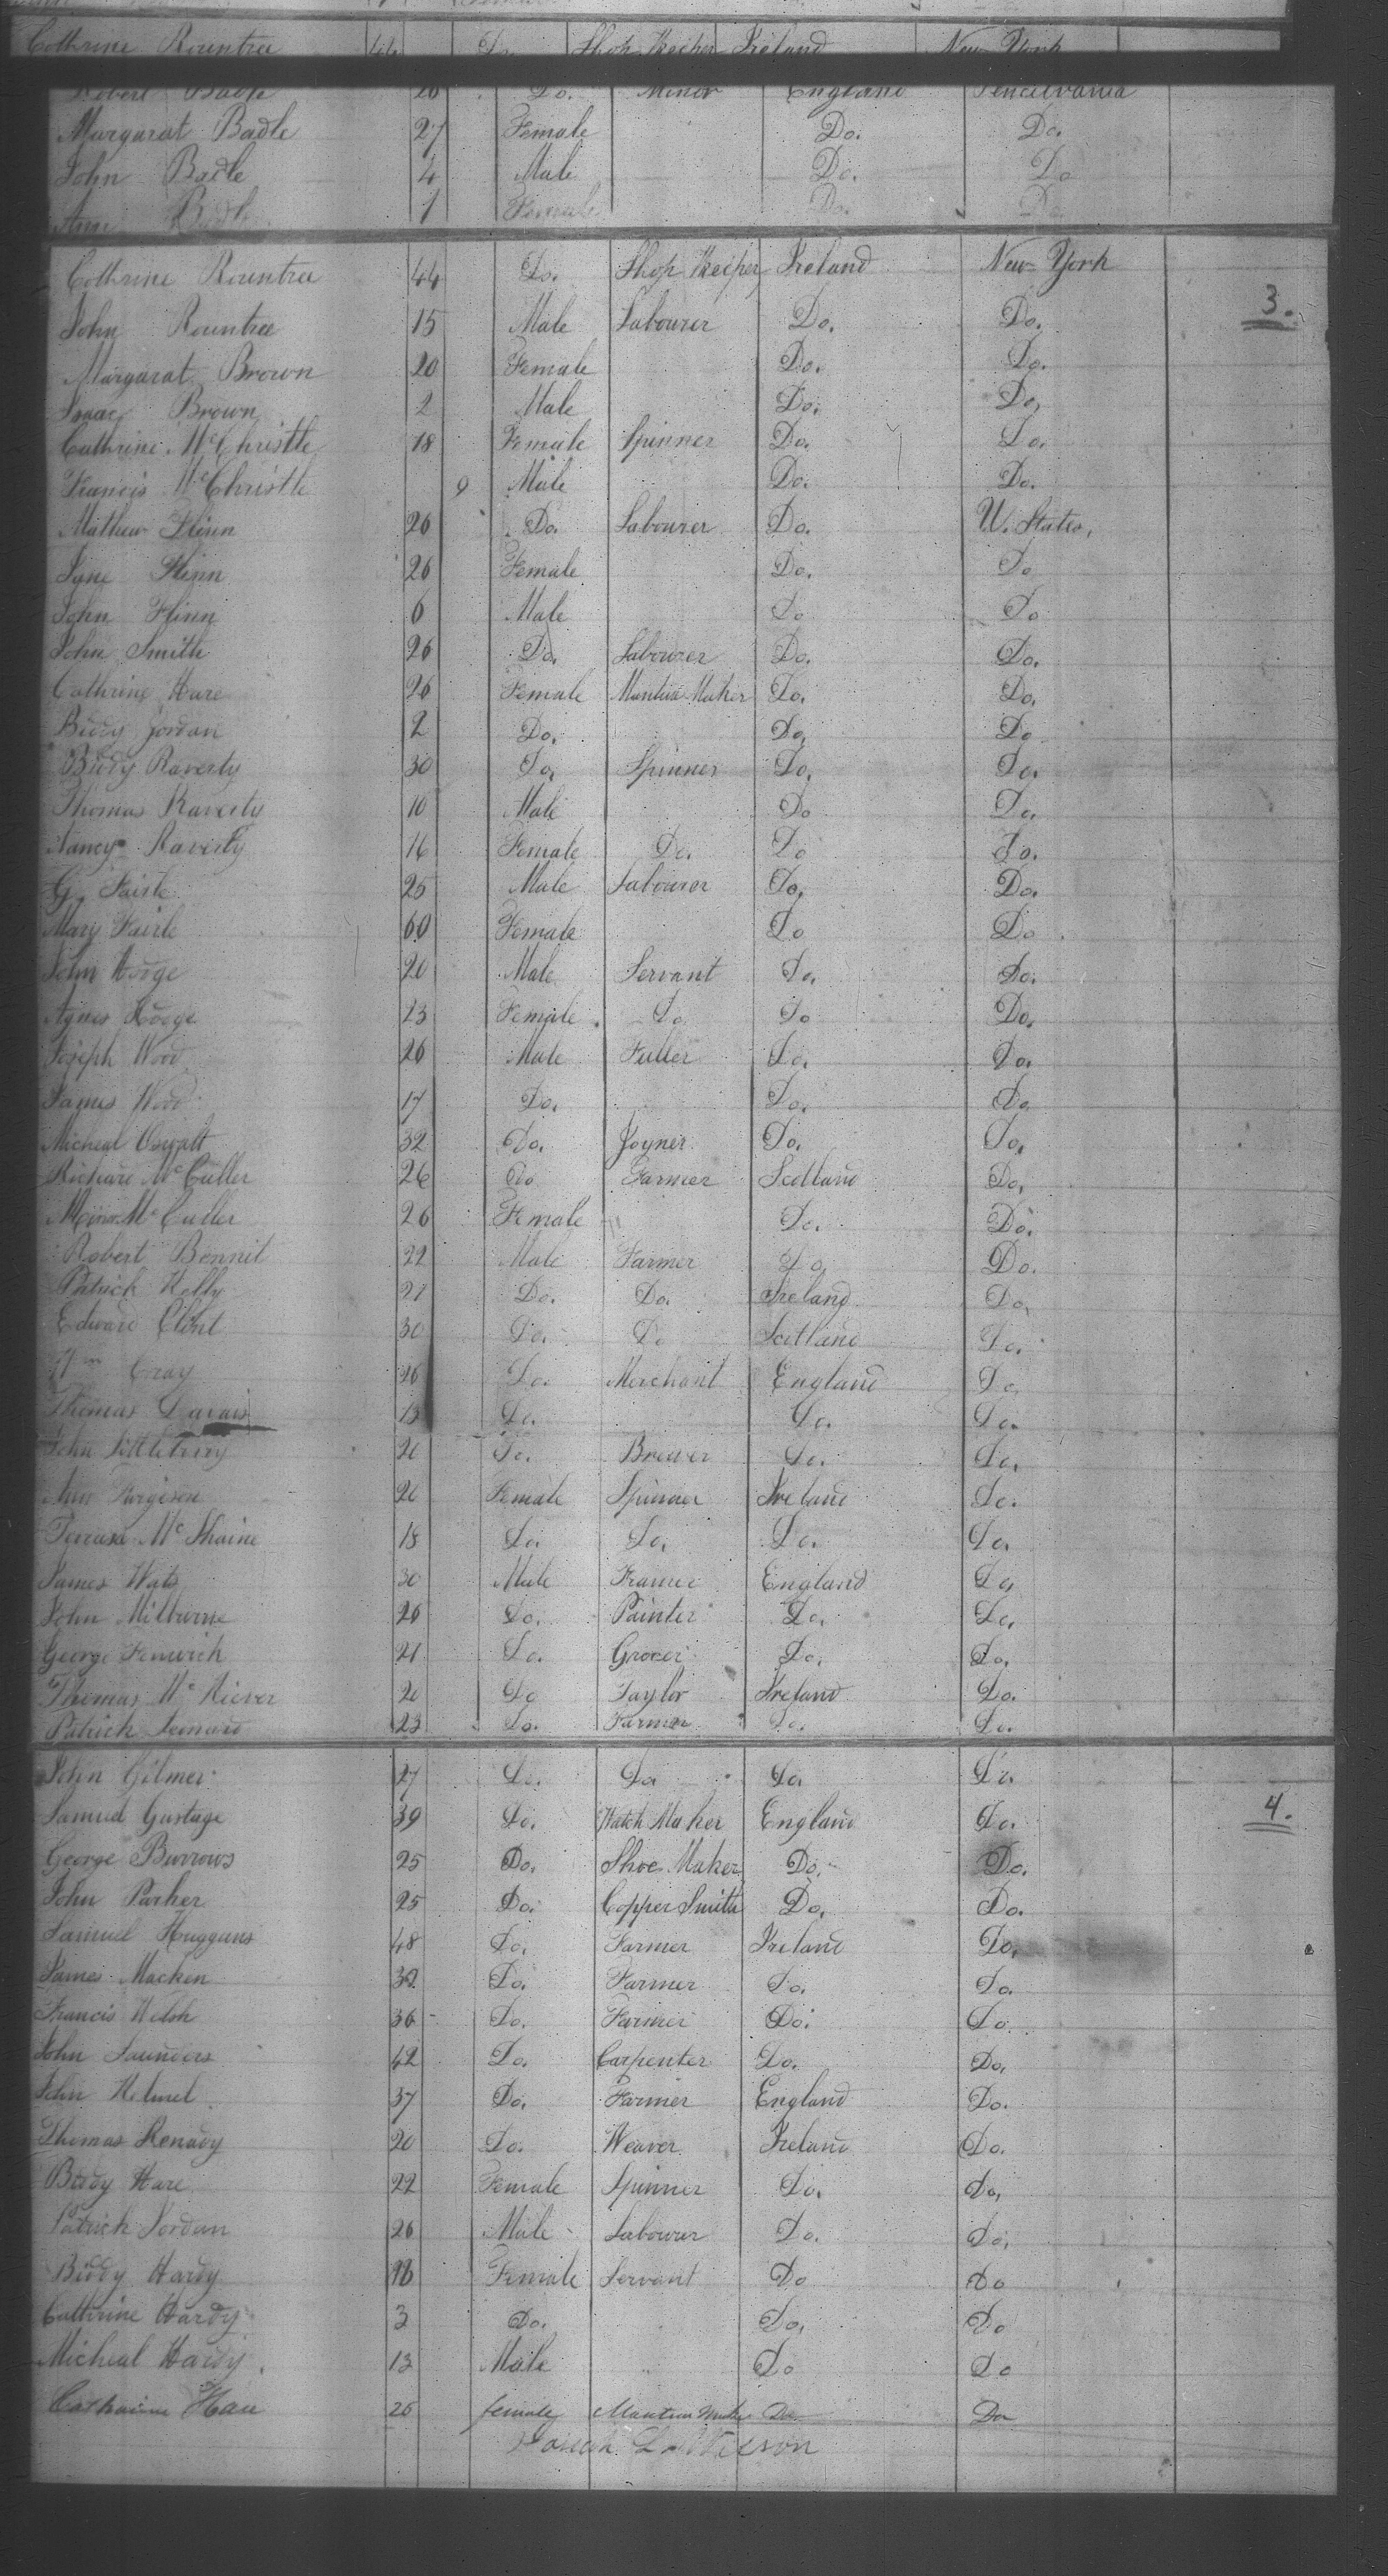 Cothrine Rountree 44 Do. Shop Keeper Ireland New York
Robert Badle 26 Do. Minor England Pencilvania
Margarat Badle 27 Female Do. Do.
John Badle 4 Male Do. Do
Ann Badle 1 Female Do. Do.
Cothrine Rountree 44 Do. Shop Keeper Ireland New York
3.
John Rountree 15 Male Labourer Do. Do.
Margarat Brown 20 Female Do. Do.
Isaac Brown 2 Male Do. Do,
Cathrine McChristle 18 Female Spinner Do. Do.
Francis McChristle 9 Male Do. Do.
Mathew Flinn 26 Do. Labourer Do. U. States,
Jane Flinn 26 Female Do. Do
John Flinn 6 Male Do Do
John Smith 26 Do. Labourer Do. Do.
Cathrine Hare 26 Female Mantua Maker Do. Do.
Biddy Jordan 2 Do. Do, Do
Biddy Raverty 30 Do, Spinner Do, Do.
Thomas Raverty 10 Male Do Do.
Nancy Raverty 16 Female Do. Do Do.
G. Fairle 25 Male Labourer Do, Do.
Mary Fairle 60 Female Do Do
John Hodge 20 Male Servant Do. Do.
Agnes Hodge 23 Female Do Do Do.
Joseph Wood 26 Male Fuller Do. Do.
James Wood 17 Do. Do. Do
Micheal Oswalt 32 Do. Joyner Do. Do,
Richard McCuller 26 Do Farmer Scotland Do,
McCuller 26 Female Do. Do.
Robert Bennit 22 Male Farmer Do, Do.
Patrick Kelly 27 Do. Do. Ireland Do,
Edward Clint 30 Do. Do Scotland Do.
Wm Gray 26 Do. Merchant England Do,
Thomas Davais 13 Do. Do. Do.
John 20 Do. Brewer Do. Do,
Ann Furgison 20 Female Spinner Ireland Do.
Terrasa McShaine 18 Do. Do, Do. Do,
James Wats 30 Male England Do,
John Milburne 26 Do. Painter Do. Do,
George Fenwick 21 Do. Grocer Do, Do.
Thomas McKiever 20 Do Taylor Ireland Do.
Patrick Leonard 23 Do. Farmer Do. Do.
John Gilmer 27 Do. Do Do Do.
4.
Samuel Gustage 39 Do. Watch Maker England Do.
George Burrows 25 Do, Shoe Maker Do. Do.
John Parker 25 Do. Copper Smith Do, Do.
Samuel Huggans 48 Do. Farmer Ireland Do,
James Macken 32 Do. Farmer Do. Do.
Francis Welsh 36 Do. Farmer Do. Do.
John Saunders 42 Do. Carpenter Do. Do,
John 37 Do, Farmer England Do.
Thomas Kenady 20 Do. Weaver Ireland Do.
Biddy Hare 22 Female Spinner Do. Do,
Patrick Jordan 26 Male Labourer Do. Do,
Biddy Hardy 18 Female Servant Do Do
Cathrine Hardy 3 Do. Do, Do
Micheal Hardy 13 Male Do Do
Catharine Hare 26 female Mantua Maker Do Do
Wilson